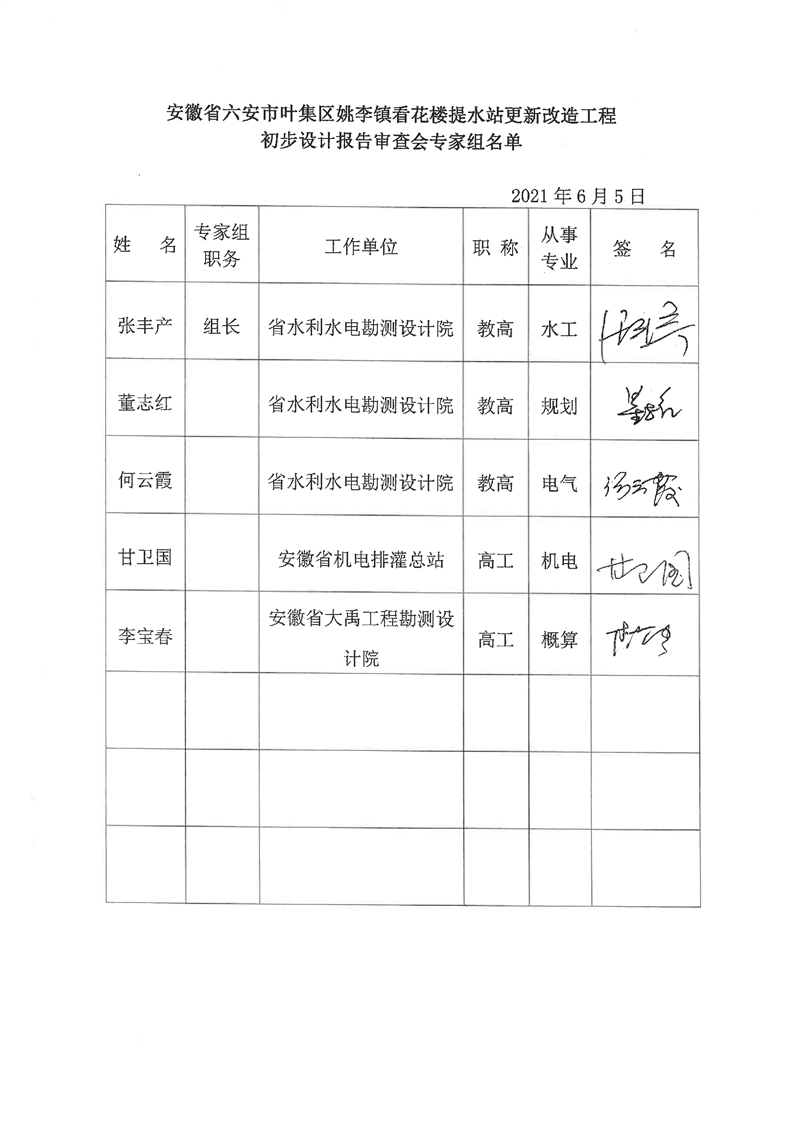 安徽省六安市叶集区姚李镇看花楼提水站更新改造工程
初步设计报告审查会专家组名单
2021年6月5日
姓 名 专家组职务 工作单位 职 称 从事专业 签 名
张丰产 组长 省水利水电勘测设计院 教高 水工
董志红 省水利水电勘测设计院 教高 规划
何云霞 省水利水电勘测设计院 教高 电气 何云霞
甘卫国 安徽省机电排灌总站 高工 机电 甘卫国
李宝春 安徽省大禹工程勘测设计院 高工 概算